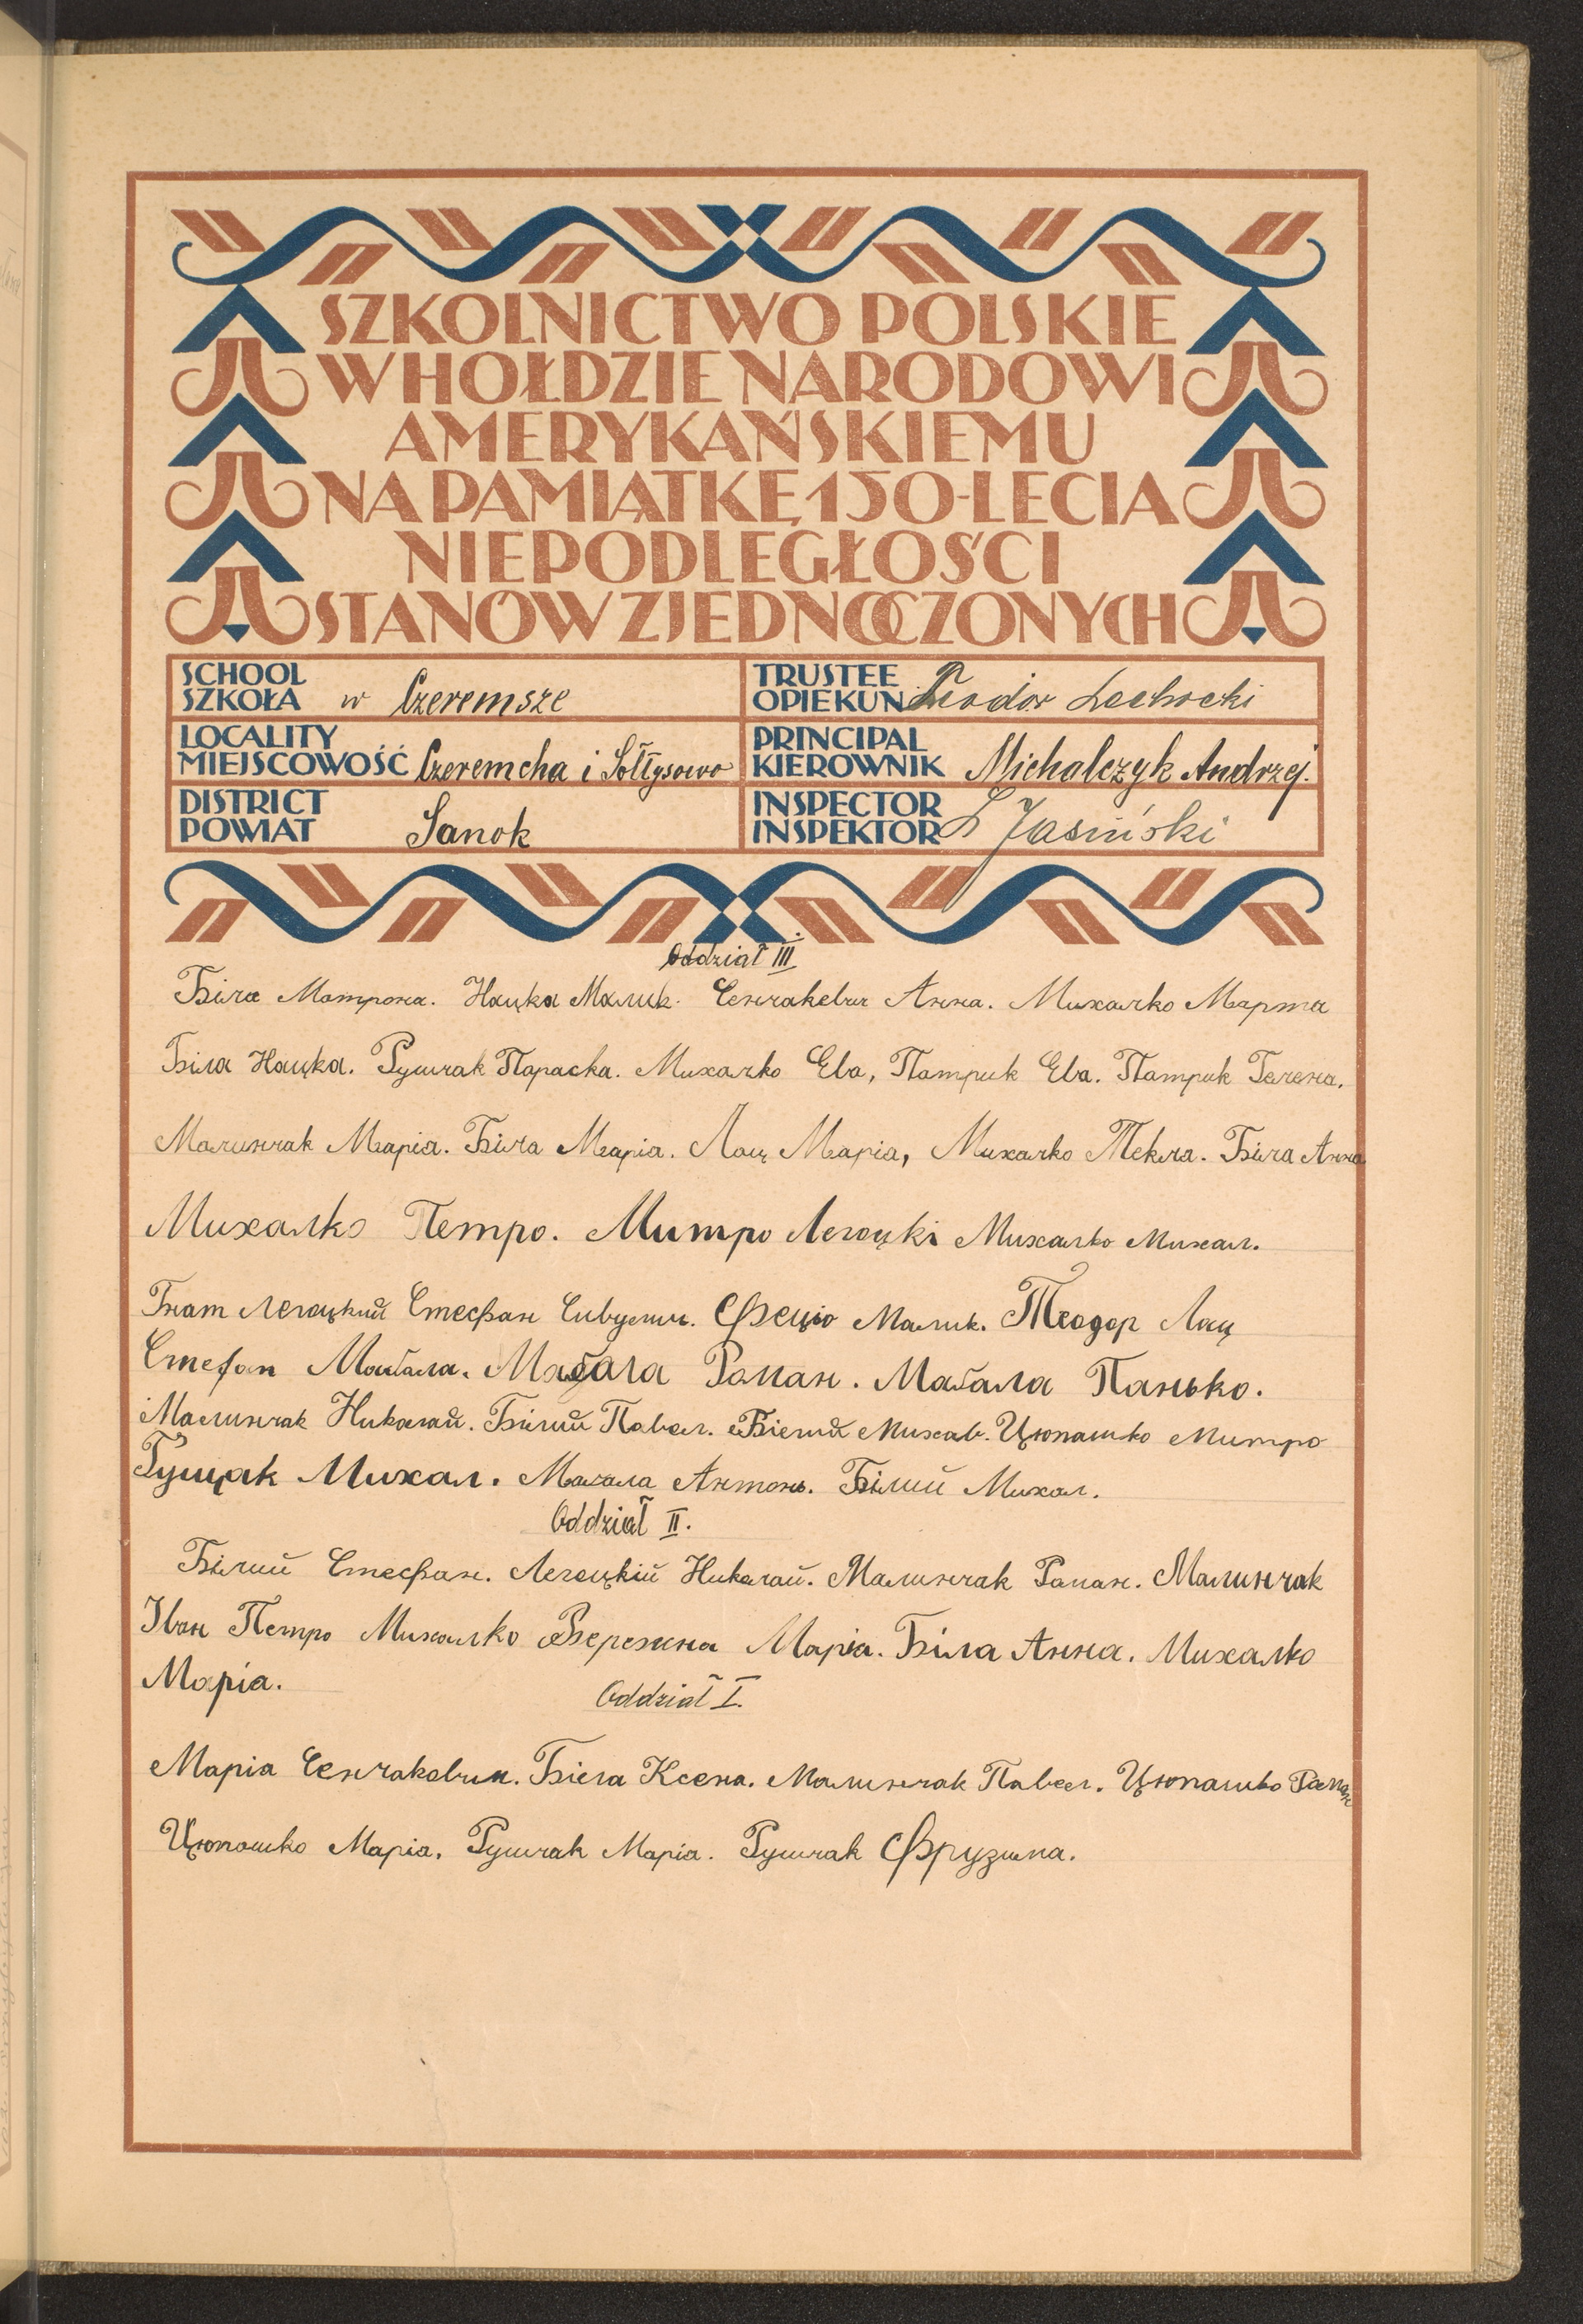 SZKOLNICTWO POLSKIE
W HOŁDZIE NARODOWI
AMERYKAŃSKIEMU
NA PAMIĄTKĘ 150-LECIA
NIEPODLEGŁOŚCI
STANÓW ZJEDNOCZONYCH
SCHOOL
SZKOŁA w Czeremsze
TRUSTEE
OPIEKUN Teodor Lechocki
LOCALITY
MIEJSCOWOŚĆ Czeremcha i Sołtysowo
PRINCIPAL
KIEROWNIK Michalczyk Andrzej.
DISTRICT
POWIAT Sanok
INSPECTOR
INSPEKTOR Jasiński
Oddział III.
Біла Матрона. Нацка Малик. Сенчакевич Анна. Михалко Марта
Біла Нацка. Рушчак Параска. Михалко Ева, Патрик Ева. Патрик Гелена.
Малинчак Марія. Біла Марія. Лац Марія, Михалко Текла. Біла Анна
Михалко Петро. Митро Легоцкі Михалко Михал.
Гнат Легоцкий Стефан Фецьо Малик. Теодор Лац
Стефан Мабала. Мабала Роман. Мабала Панько.
Малинчак Николай. Білий Павел. Біелий Михав. Цюпашко Митро
Рущак Михал. Антонь. Білий Михал.
Oddział II.
Білий Стефан. Легоцкій Николай. Малинчак Роман. Малинчак
Іван Петро Михалко Вережина Марія. Біла Анна. Михалко
Марія.
Oddział I.
Марія Сенчакович. Біела Ксена. Малинчак Павел. Цюпашко Роман
Цюпашко Марія. Рушчак Марія. Рушчак Фрузина.